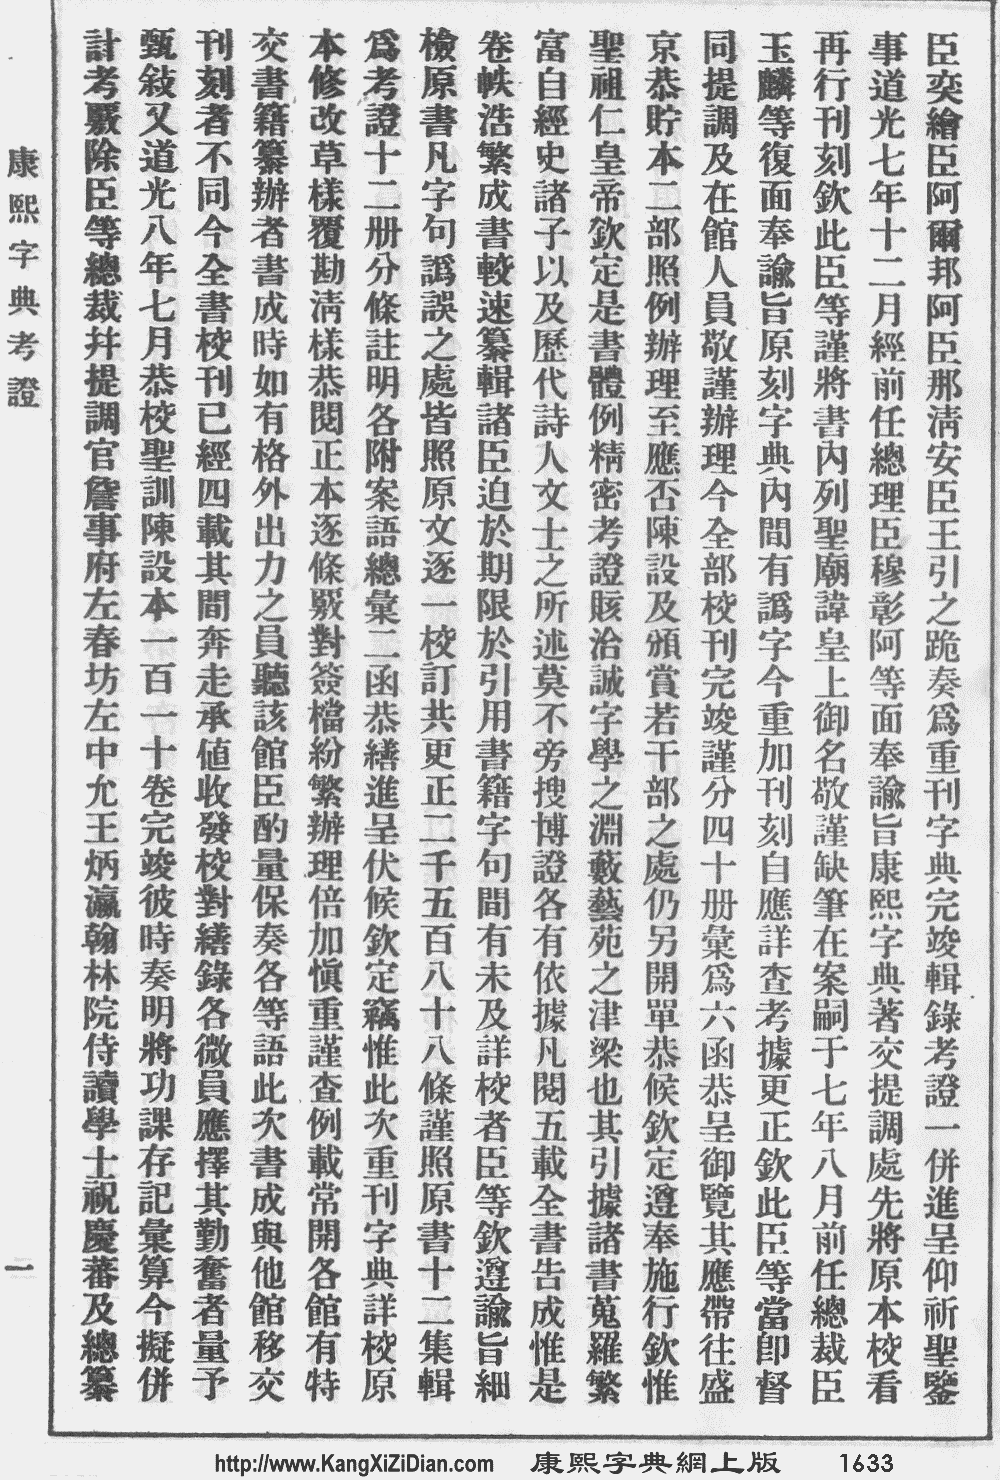 臣奕繪臣阿爾邦阿臣那淸安臣王引之跪奏爲重刊字典完竣輯錄考證一併進呈仰祈聖鑒
事道光七年十二月經前任總理臣穆彰阿等面奉諭旨康熙字典著交提調處先將原本校看
再行刊刻欽此臣等謹將書內列聖廟諱皇上御名敬謹缺筆在案嗣于七年八月前任總裁臣
玉麟等復面奉諭旨原刻字典內間有譌字今重加刊刻自應詳查考據更正欽此臣等當卽督
同提調及在館人員敬謹辦理今全部校刊完竣謹分四十册彙爲六函恭呈御覽其應帶往盛
京恭貯本二部照例辦理至應否陳設及頒賞若干部之處仍另開單恭候欽定遵奉施行欽惟
聖祖仁皇帝欽定是書體例精密考證賅洽誠字學之淵藪藝苑之津梁也其引據諸書蒐羅繁
富自經史諸子以及歷代詩人文士之所述莫不旁搜博證各有依據凡閱五載全書告成惟是
卷帙浩繁成書較速纂輯諸臣迫於期限於引用書籍字句間有未及詳校者臣等欽遵諭旨細
檢原書凡字句譌誤之處皆照原文逐一校訂共更正二千五百八十八條謹照原書十二集輯
爲考證十二册分條註明各附案語總彙二函恭繕進呈伏候欽定竊惟此次重刊字典詳校原
本修改草樣覆勘淸樣恭閱正本逐條覈對簽檔紛繁辦理倍加愼重謹查例載常開各館有特
交書籍纂辦者書成時如有格外出力之員聽該館臣酌量保奏各等語此次書成與他館移交
刊刻者不同今全書校刊已經四載其間奔走承値收發校對繕錄各微員應擇其勤奮者量予
甄敍又道光八年七月恭校聖訓陳設本一百一十卷完竣彼時奏明將功課存記彙算今擬併
計考覈除臣等總裁幷提調官詹事府左春坊左中允王炳瀛翰林院侍讀學士祝慶蕃及總纂
康熙字典考證
一
http://www.KangXiZiDian.com 康熙字典網上版 1633